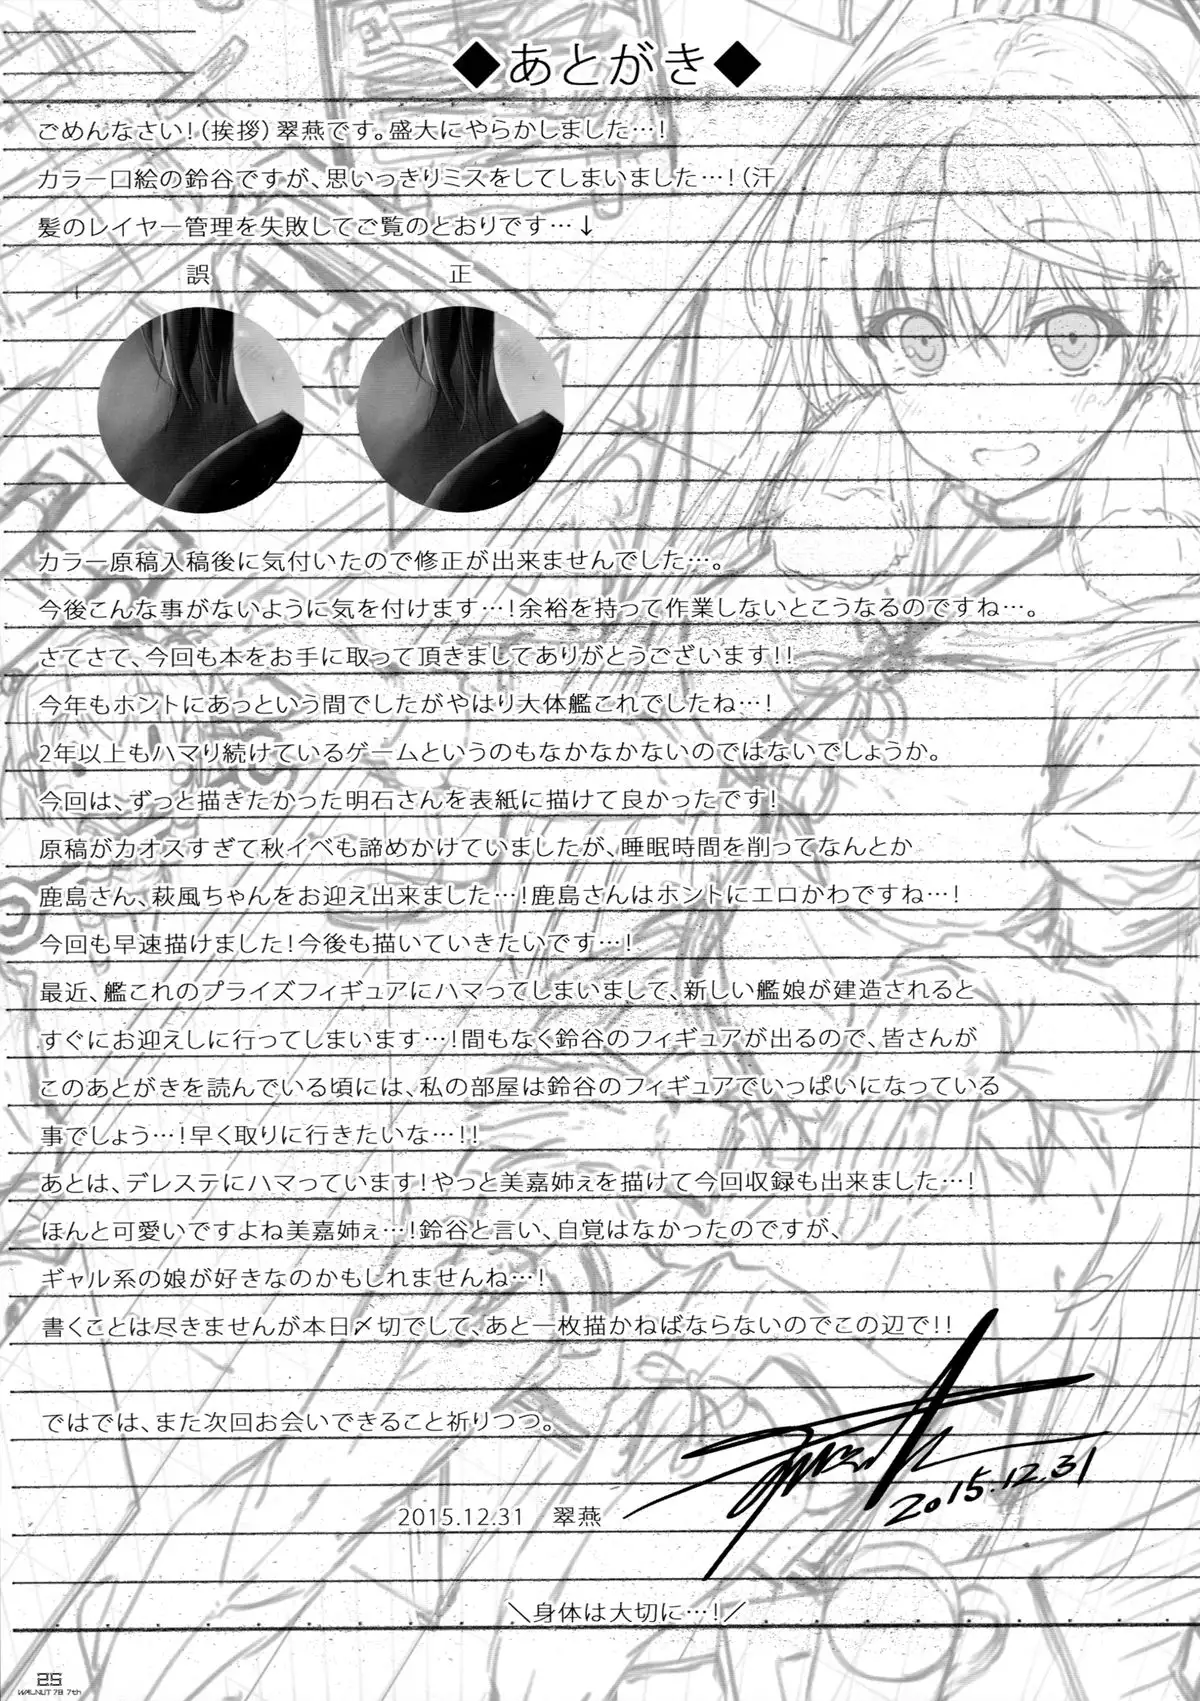 ◆あとがき◆
ごめんなさい！（挨拶）翠燕です。盛大にやらかしました…！
カラー口絵の鈴谷ですが、思いっきりミスをしてしまいました…！（汗
髪のレイヤー管理を失敗してご覧のとおりです…↓
誤　正
カラー原稿入稿後に気付いたので修正が出来ませんでした…。
今後こんな事がないように気を付けます…！余裕を持って作業しないとこうなるのですね…。
さてさて、今回も本をお手に取って頂きましてありがとうございます！！
今年もホントにあっという間でしたがやはり大体艦これでしたね…！
2年以上もハマり続けているゲームというのもなかなかないのではないでしょうか。
今回は、ずっと描きたかった明石さんを表紙に描けて良かったです！
原稿がカオスすぎて秋イベも諦めかけていましたが、睡眠時間を削ってなんとか
鹿島さん、萩風ちゃんをお迎え出来ました…！鹿島さんはホントにエロかわですね…！
今回も早速描けました！今後も描いていきたいです…！
最近、艦これのプライズフィギュアにハマってしまいまして、新しい艦娘が建造されると
すぐにお迎えしに行ってしまいます…！間もなく鈴谷のフィギュアが出るので、皆さんが
このあとがきを読んでいる頃には、私の部屋は鈴谷のフィギュアでいっぱいになっている
事でしょう…！早く取りに行きたいな…！！
あとは、デレステにハマっています！やっと美嘉姉ぇを描けて今回収録も出来ました…！
ほんと可愛いですよね美嘉姉ぇ…！鈴谷と言い、自覚はなかったのですが、
ギャル系の娘が好きなのかもしれませんね…！
書くことは尽きませんが本日〆切でして、あと一枚描かねばならないのでこの辺で！！
ではでは、また次回お会いできること祈りつつ。
2015.12.31
2015.12.31　翠燕
＼身体は大切に…！／
25
WALNUT 78 7th